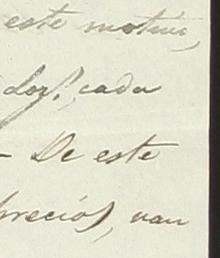 este motivo,
dos?, cada
- De este
precios, van